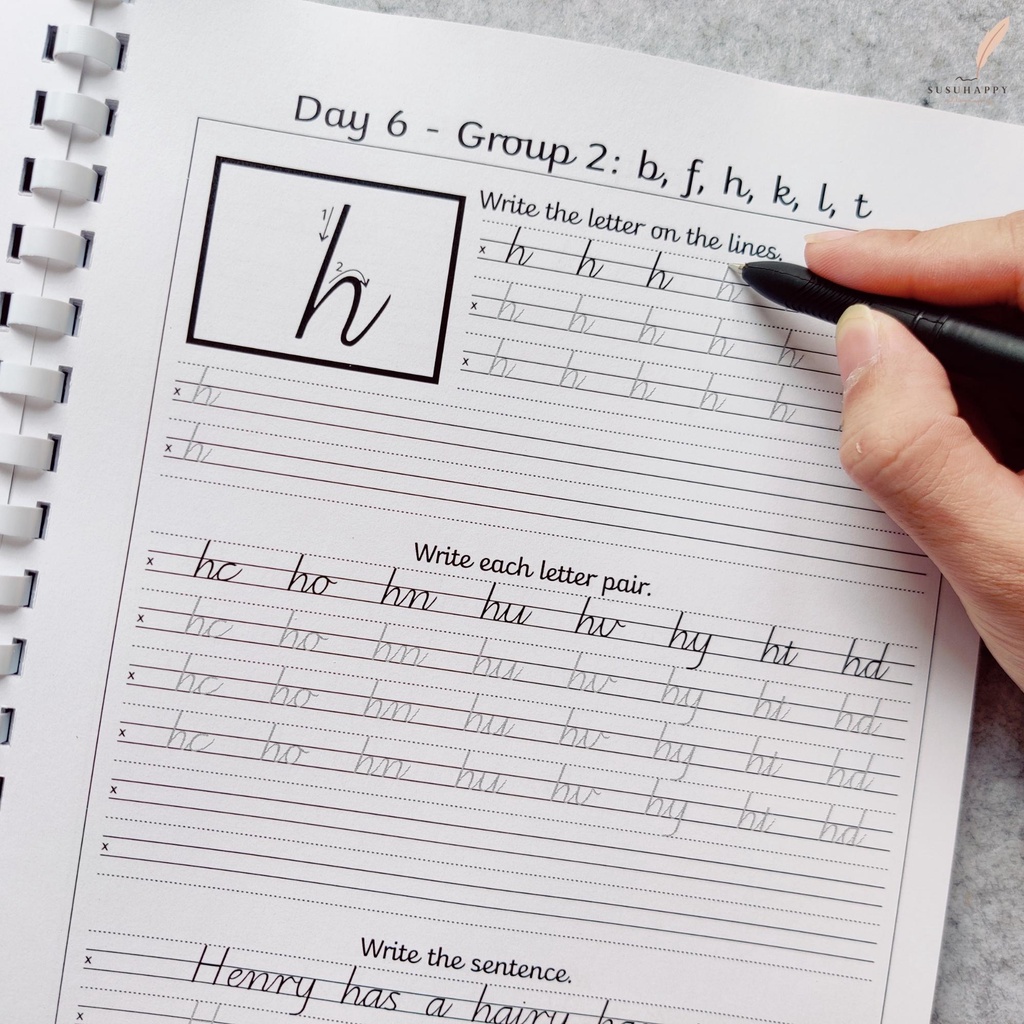 SUSUHAPPY
Day 6 - Group 2: b, f, h, k, l, t
1
2
h
Write the letter on the lines.
x h h h h
x h h h h h
x h h h h h
x h
x h
Write each letter pair.
x hc ho hn hu hv hy ht hd
x hc ho hn hu hv hy ht hd
x hc ho hn hu hv hy ht hd
x hc ho hn hu hv hy ht hd
x
x
Write the sentence.
x Henry has a hairy
x H